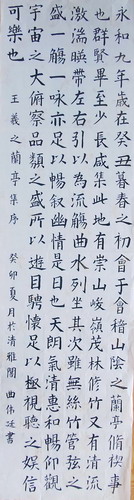 永和九年歲在癸丑暮春之初會于會稽山陰之蘭亭脩禊事
也群賢畢至少長咸集此地有崇山峻嶺茂林修竹又有清流
激湍暎帶左右引以為流觴曲水列坐其次雖無絲竹管弦之
盛一觴一詠亦足以暢叙幽情是日也天朗氣清惠和暢仰觀
宇宙之大俯察品類之盛所以遊目騁懷足以極視聽之娱信
可樂也
王羲之蘭亭集序
癸卯夏月於清雅閣曲伟書